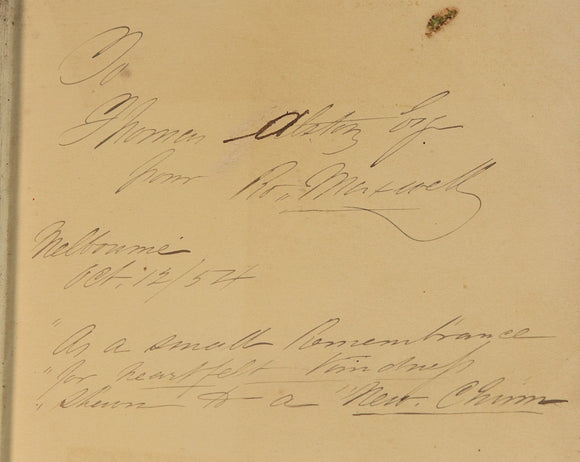 To
Thomas Alston Esq
from Ro,, Maxwell
Melbourne
Oct. 12/54
"As a small Remembrance
"for heartfelt kindness
"shewn to a "New. Chum